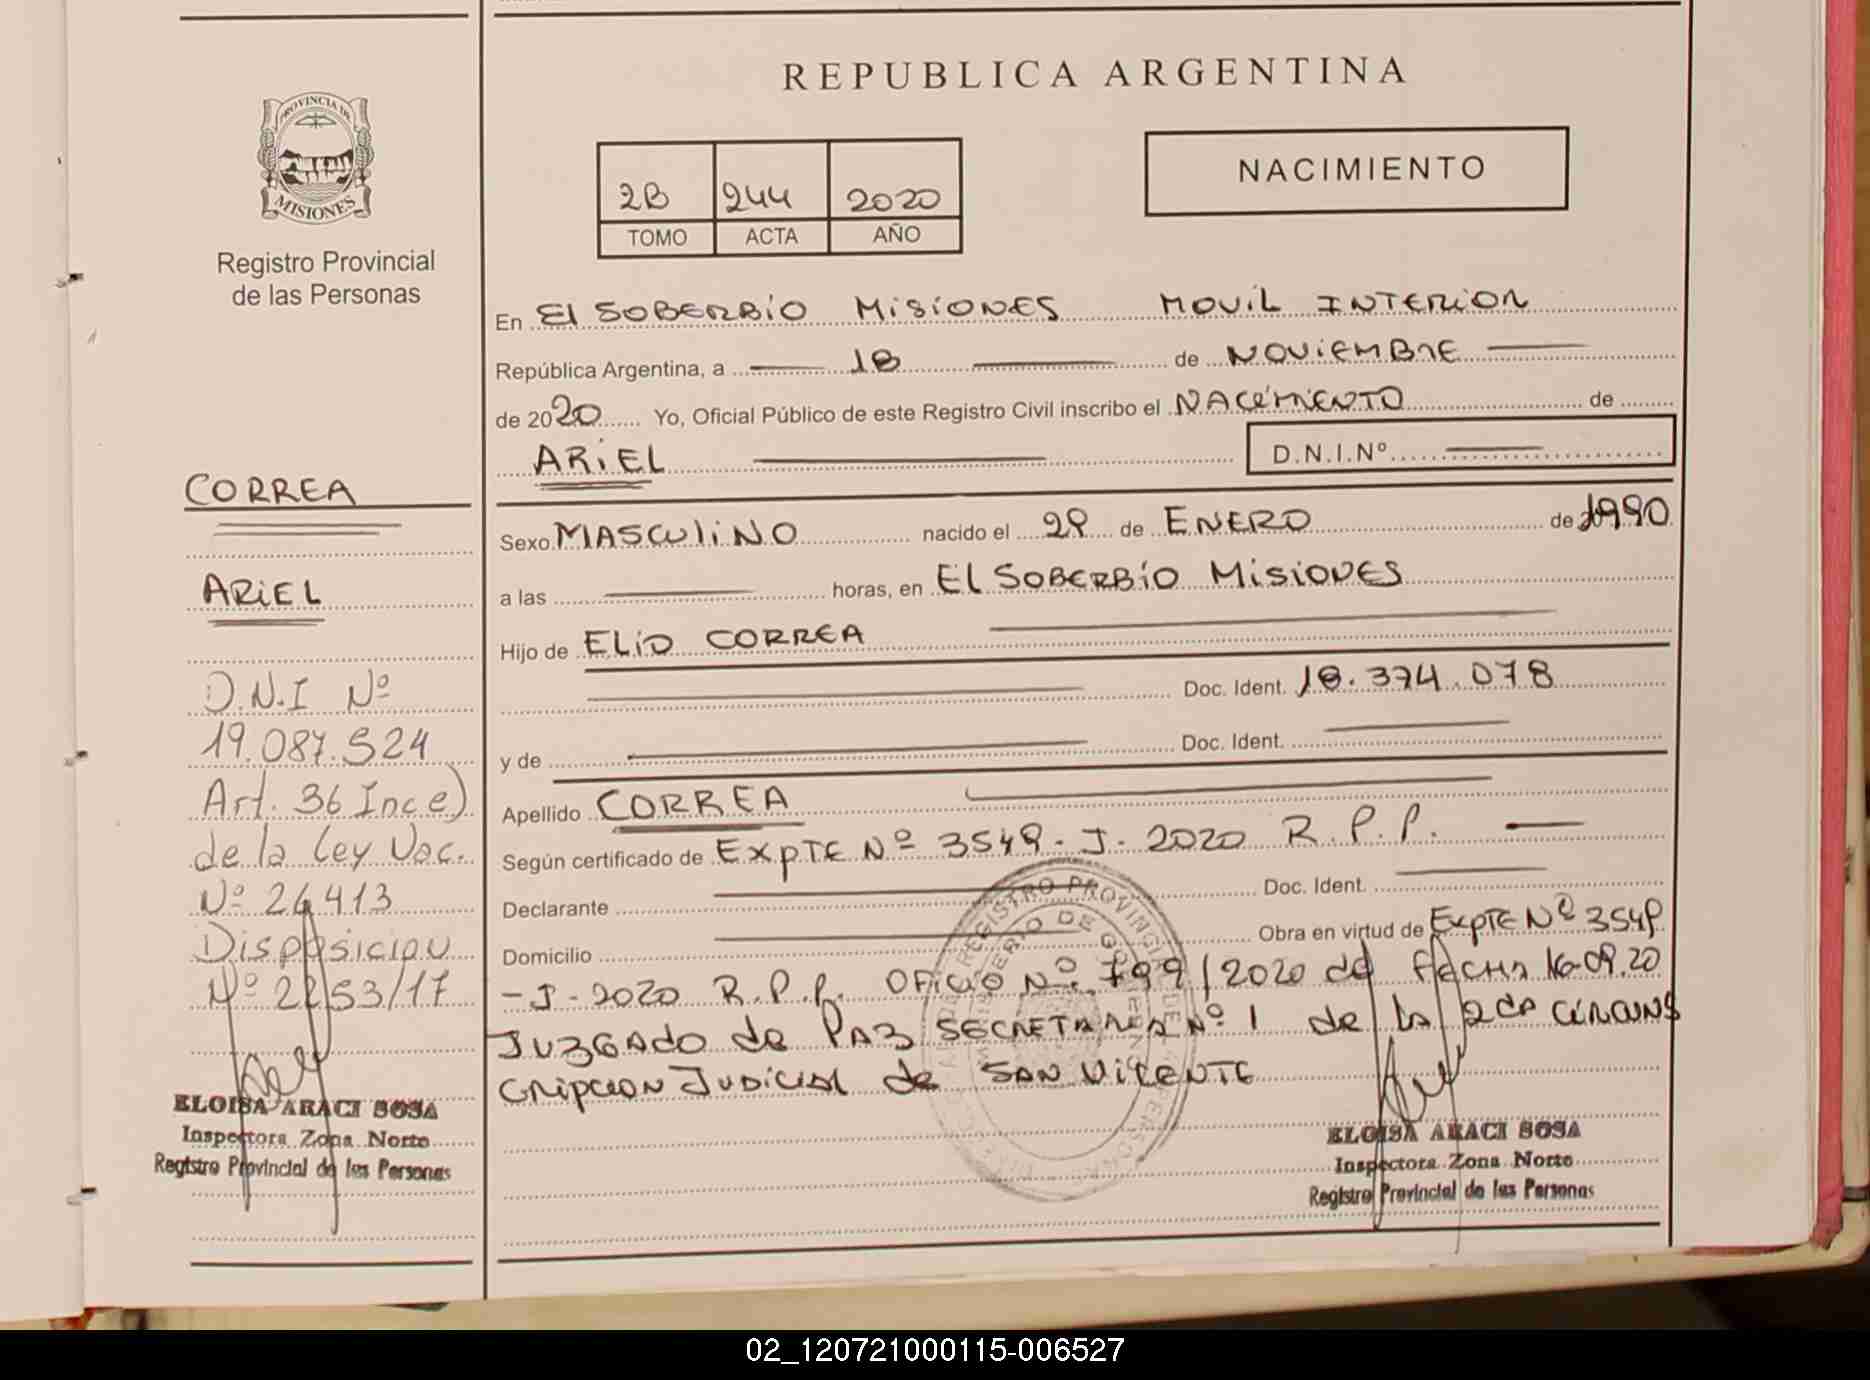 REPUBLICA ARGENTINA
PROVINCIA DE
MISIONES
Registro Provincial
de las Personas
2B 244 2020
TOMO ACTA AÑO
NACIMIENTO
En El SOBERBIO MISIONES MOVIL INTERIOR
República Argentina, a 18 de NOVIEMBRE
de 2020 Yo, Oficial Público de este Registro Civil inscribo el NACIMIENTO de
ARIEL D.N.I.Nº
Sexo MASCULINO nacido el 29 de ENERO de 1990
a las horas, en El SOBERBIO MISIONES
Hijo de ELIO CORREA
Doc. Ident. 18.374.078
y de Doc. Ident.
Apellido CORREA
Según certificado de EXPTE Nº 3549-J-2020 R.P.P.
Declarante Doc. Ident.
Domicilio Obra en virtud de EXPTE Nº 3549
-J-2020 R.P.P. OFICIO Nº 799/2020 de FECHA 16-09.20
JUZGADO de PAZ SECRETARIA Nº 1 de LA 2da CIRCUNS
CRIPCION JUDICIAL de SAN VICENTE
ELOISA ARACI SOSA
Inspectora Zona Norte
Registro Provincial de las Personas
CORREA
ARIEL
D.N.I Nº
19.087.524
Art. 36 Inc e)
de la Ley Nac.
Nº 26413
Disposicion
Nº 2253/17
ELOISA ARACI SOSA
Inspectora Zona Norte
Registro Provincial de las Personas
02_120721000115-006527